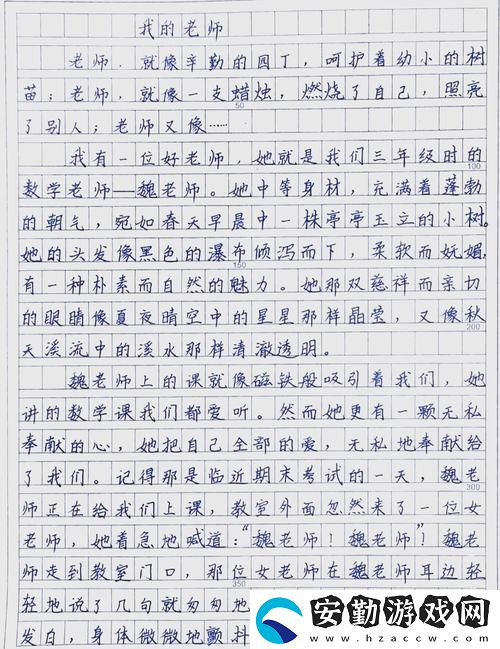 我的老师
老师，就像辛勤的园丁，呵护着幼小的树
苗；老师，就像一支蜡烛，燃烧了自己，照亮
50
了别人；老师又像……
我有一位好老师，她就是我们三年级时的
100
数学老师——魏老师。她中等身材，充满着蓬勃
的朝气，宛如春天早晨中一株亭亭玉立的小树。
她的头发像黑色的瀑布倾泻而下，柔软而妩媚，
150
有一种朴素而自然的魅力。她那双慈祥而亲切
的眼睛像夏夜晴空中的星星那样晶莹，又像秋
200
天溪流中的溪水那样清澈透明。
魏老师上的课就像磁铁般吸引着我们，她
讲的数学课我们都爱听。然而她更有一颗无私
奉献的心，她把自己全部的爱，无私地奉献给
了我们。记得那是临近期末考试的一天，魏老
300
师正在给我们上课，教室外面忽然来了一位女
老师，她着急地喊道：“魏老师！魏老师”！魏老
师走到教室门口，那位女老师在魏老师耳边轻
350
轻地说了几句就匆匆地
发白，身体微微地颤抖
安勤游戏网
www.hzaccw.com